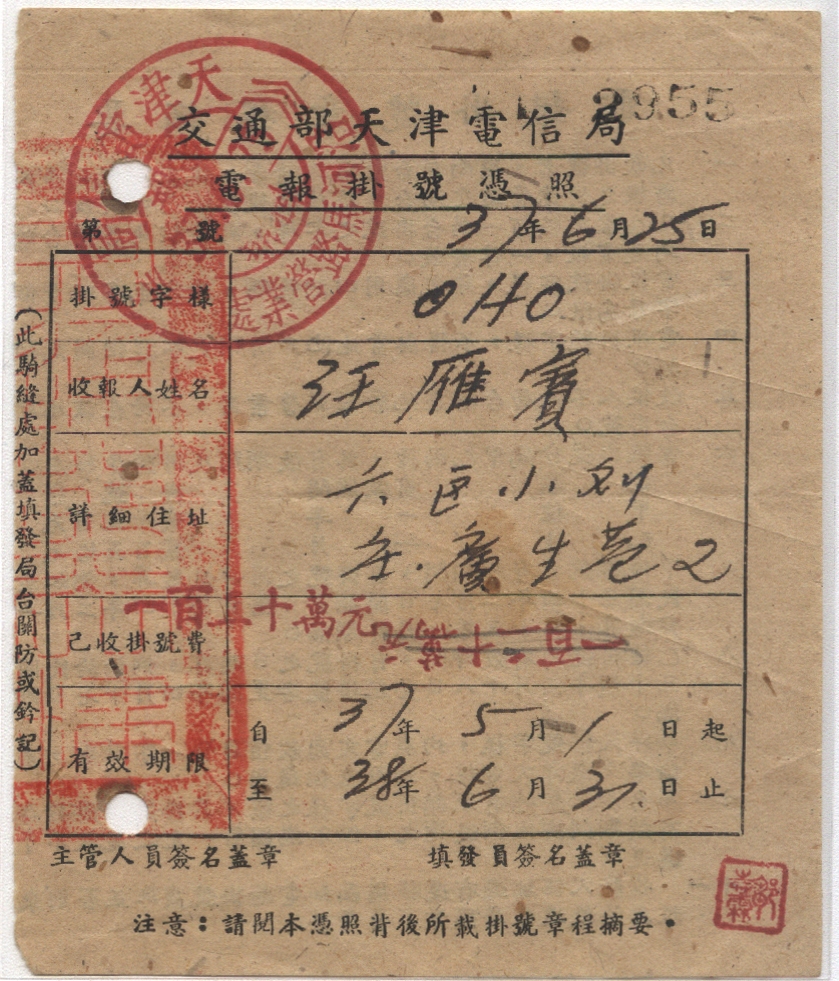 3955
交通部天津電信局
電報掛號憑照
第 號
37年6月25日
掛號字樣 0140
收報人姓名 汪雁賓
詳細住址 六區小劉
庄.廣生巷2
已收掛號費 一百二十萬元
一百二十萬元
有效期限
自 37年 5月 1日起
至 38年 6月 31日止
主管人員簽名蓋章 填發員簽名蓋章
注意：請閱本憑照背後所載掛號章程摘要•
(此騎縫處加蓋填發局台關防或鈐記)
天津電信局
河馬路營業處